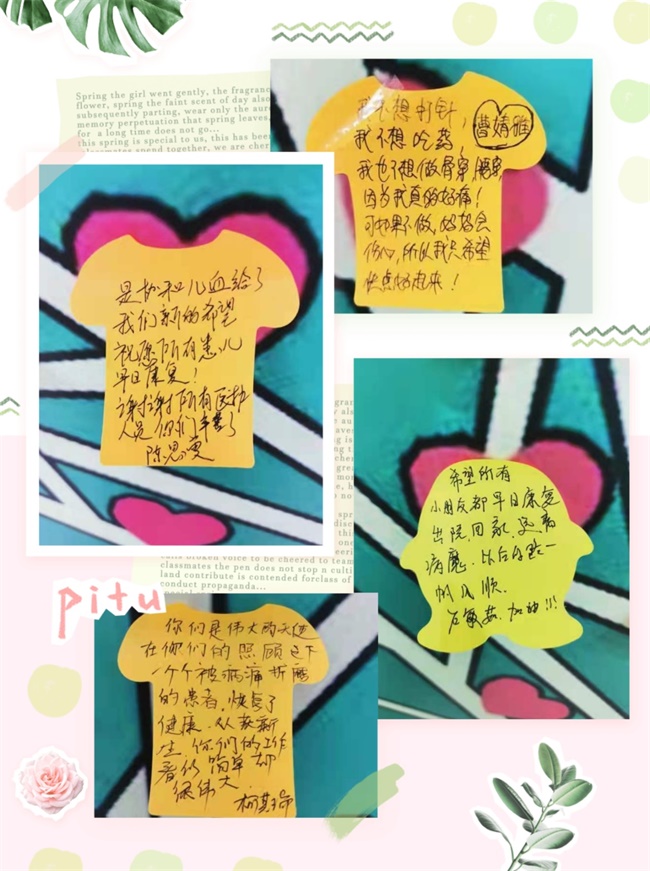 Spring the girl went gently, the fragranc
flower, spring the faint scent of day also
subsequently parting, wear only the aur
memory perpetuation that spring leaves,
for a long time does not go...
this spring is special to us, this has been
我不想打针，
我不想吃药，
曹婧雅
我也不想做骨穿，腰穿，
因为我真的好痛！
可如果不做，妈妈会
伤心，所以我只希望
快点好起来！
是协和儿血给了
我们新的希望
祝愿所有患儿
早日康复！
谢谢所有医护
人员你们辛苦了
陈思雯
希望所有
小朋友都早日康复
出院，回家，远离
病魔．以后的路一
帆风顺．
加油!!!
classmates the pen does not stop n culti
land contribute is contended forclass of
conduct propaganda...
pitu
你们是伟大的天使
在你们的照顾之下
一个个被病痛折磨
的患者，恢复了
健康．从获新
生．你们的工作
看似简单却
很伟大